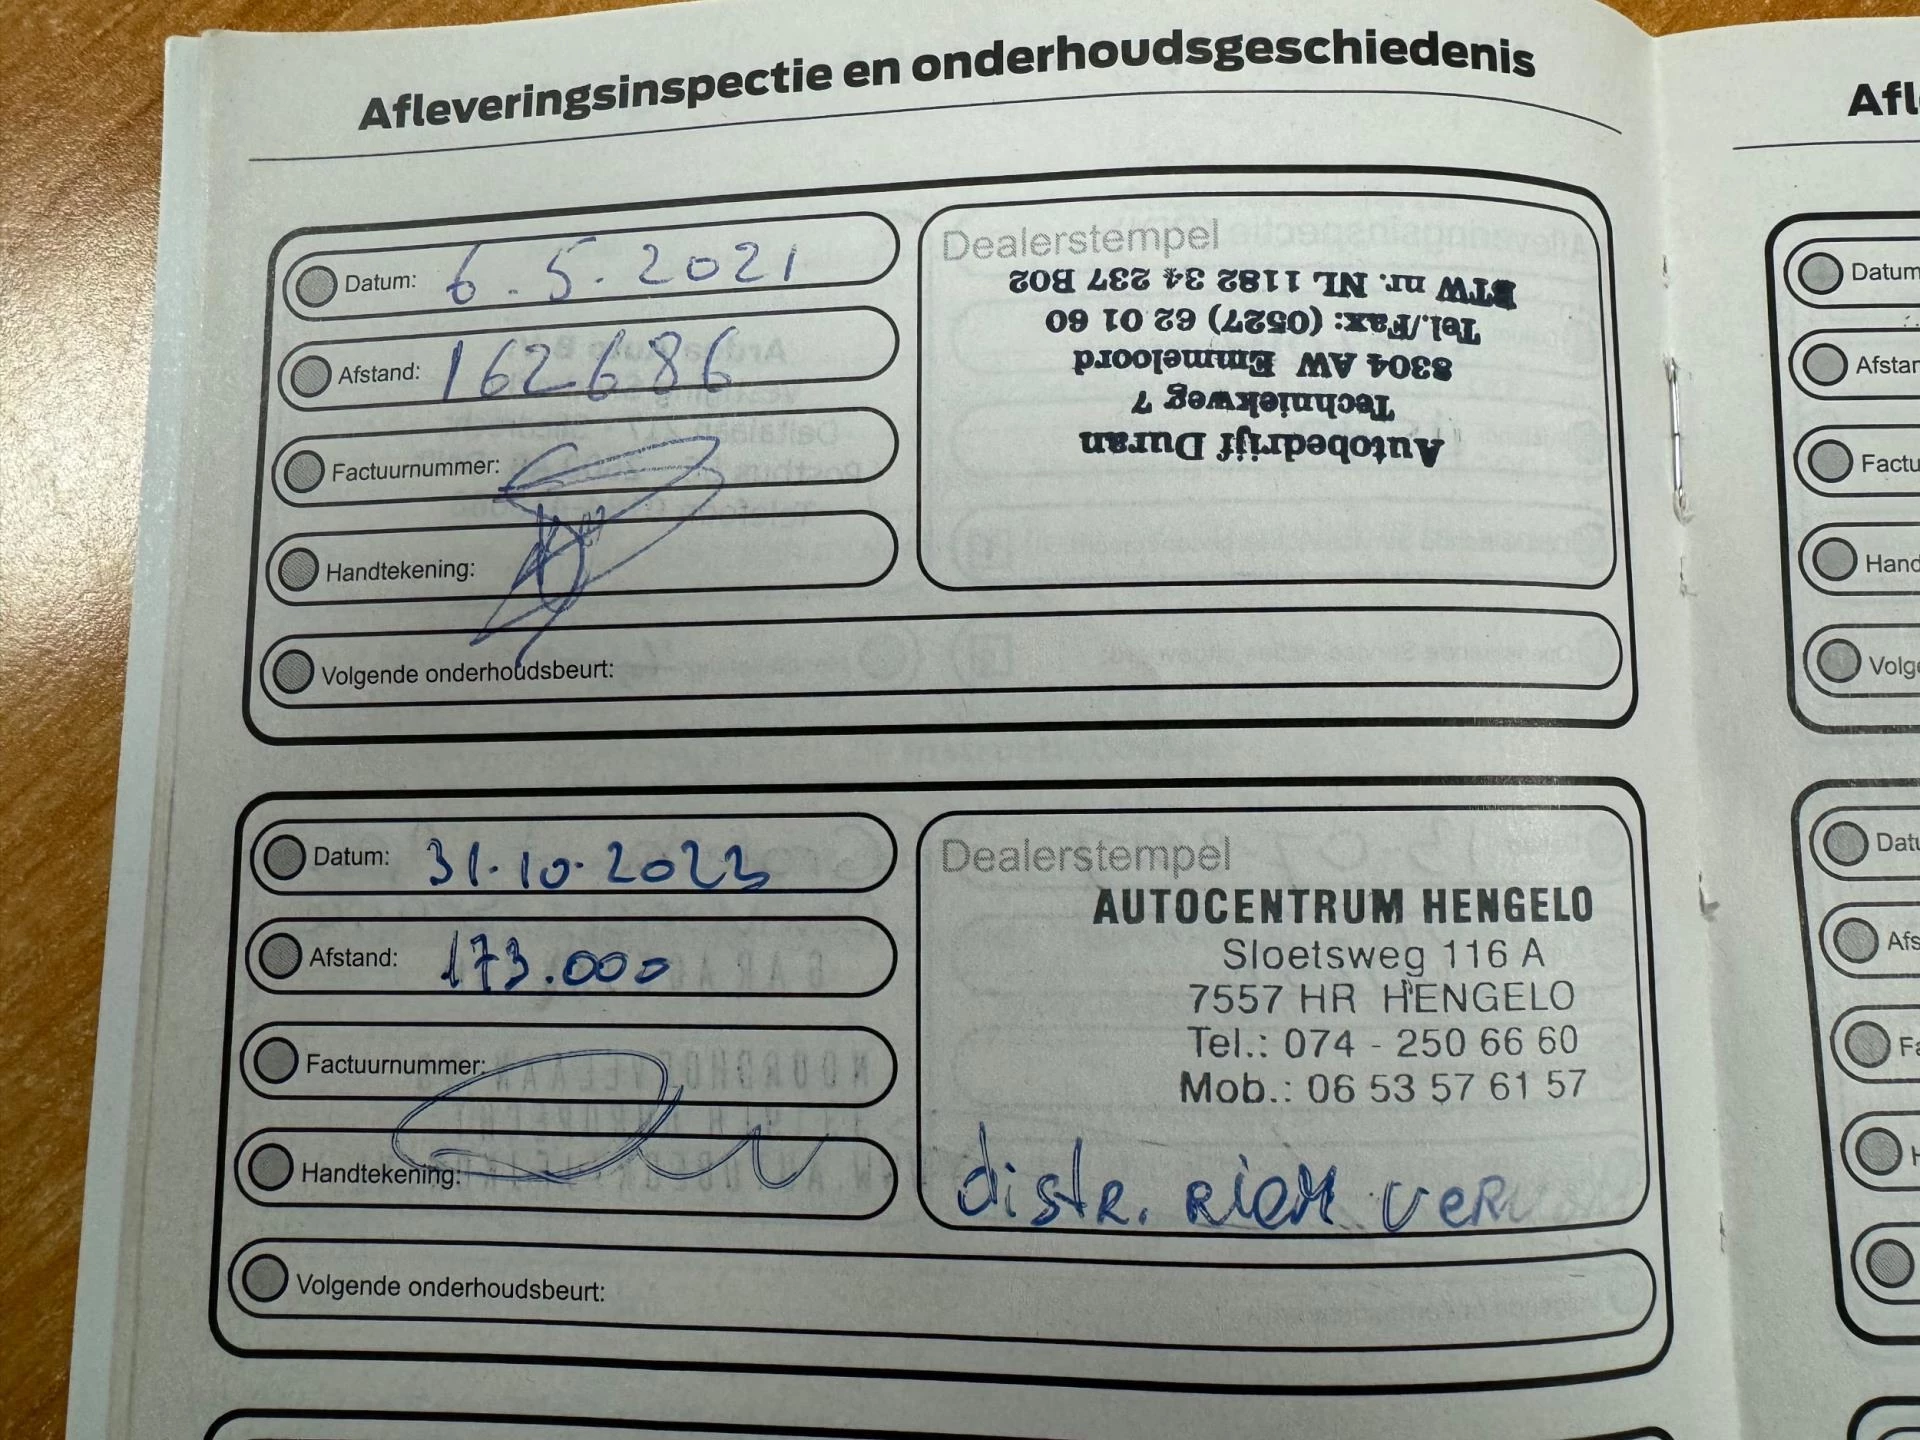 Afleveringsinspectie en onderhoudsgeschiedenis
Datum: 6.5.2021
Afstand: 162686
Factuurnummer:
Handtekening:
Volgende onderhoudsbeurt:
Dealerstempel
Autobedrijf Duran
Techniekweg 7
8304 AW Emmeloord
Tel./Fax: (0527) 62 01 60
BTW nr. NL 1182 34 237 B02
Datum: 31.10.2023
Afstand: 173.000
Factuurnummer:
Handtekening:
Volgende onderhoudsbeurt:
Dealerstempel
AUTOCENTRUM HENGELO
Sloetsweg 116 A
7557 HR HENGELO
Tel.: 074 - 250 66 60
Mob.: 06 53 57 61 57
distr. RIEM
Afl
Datum
Afstan
Factu
Hand
Volge
Datu
Afs
Fa
H